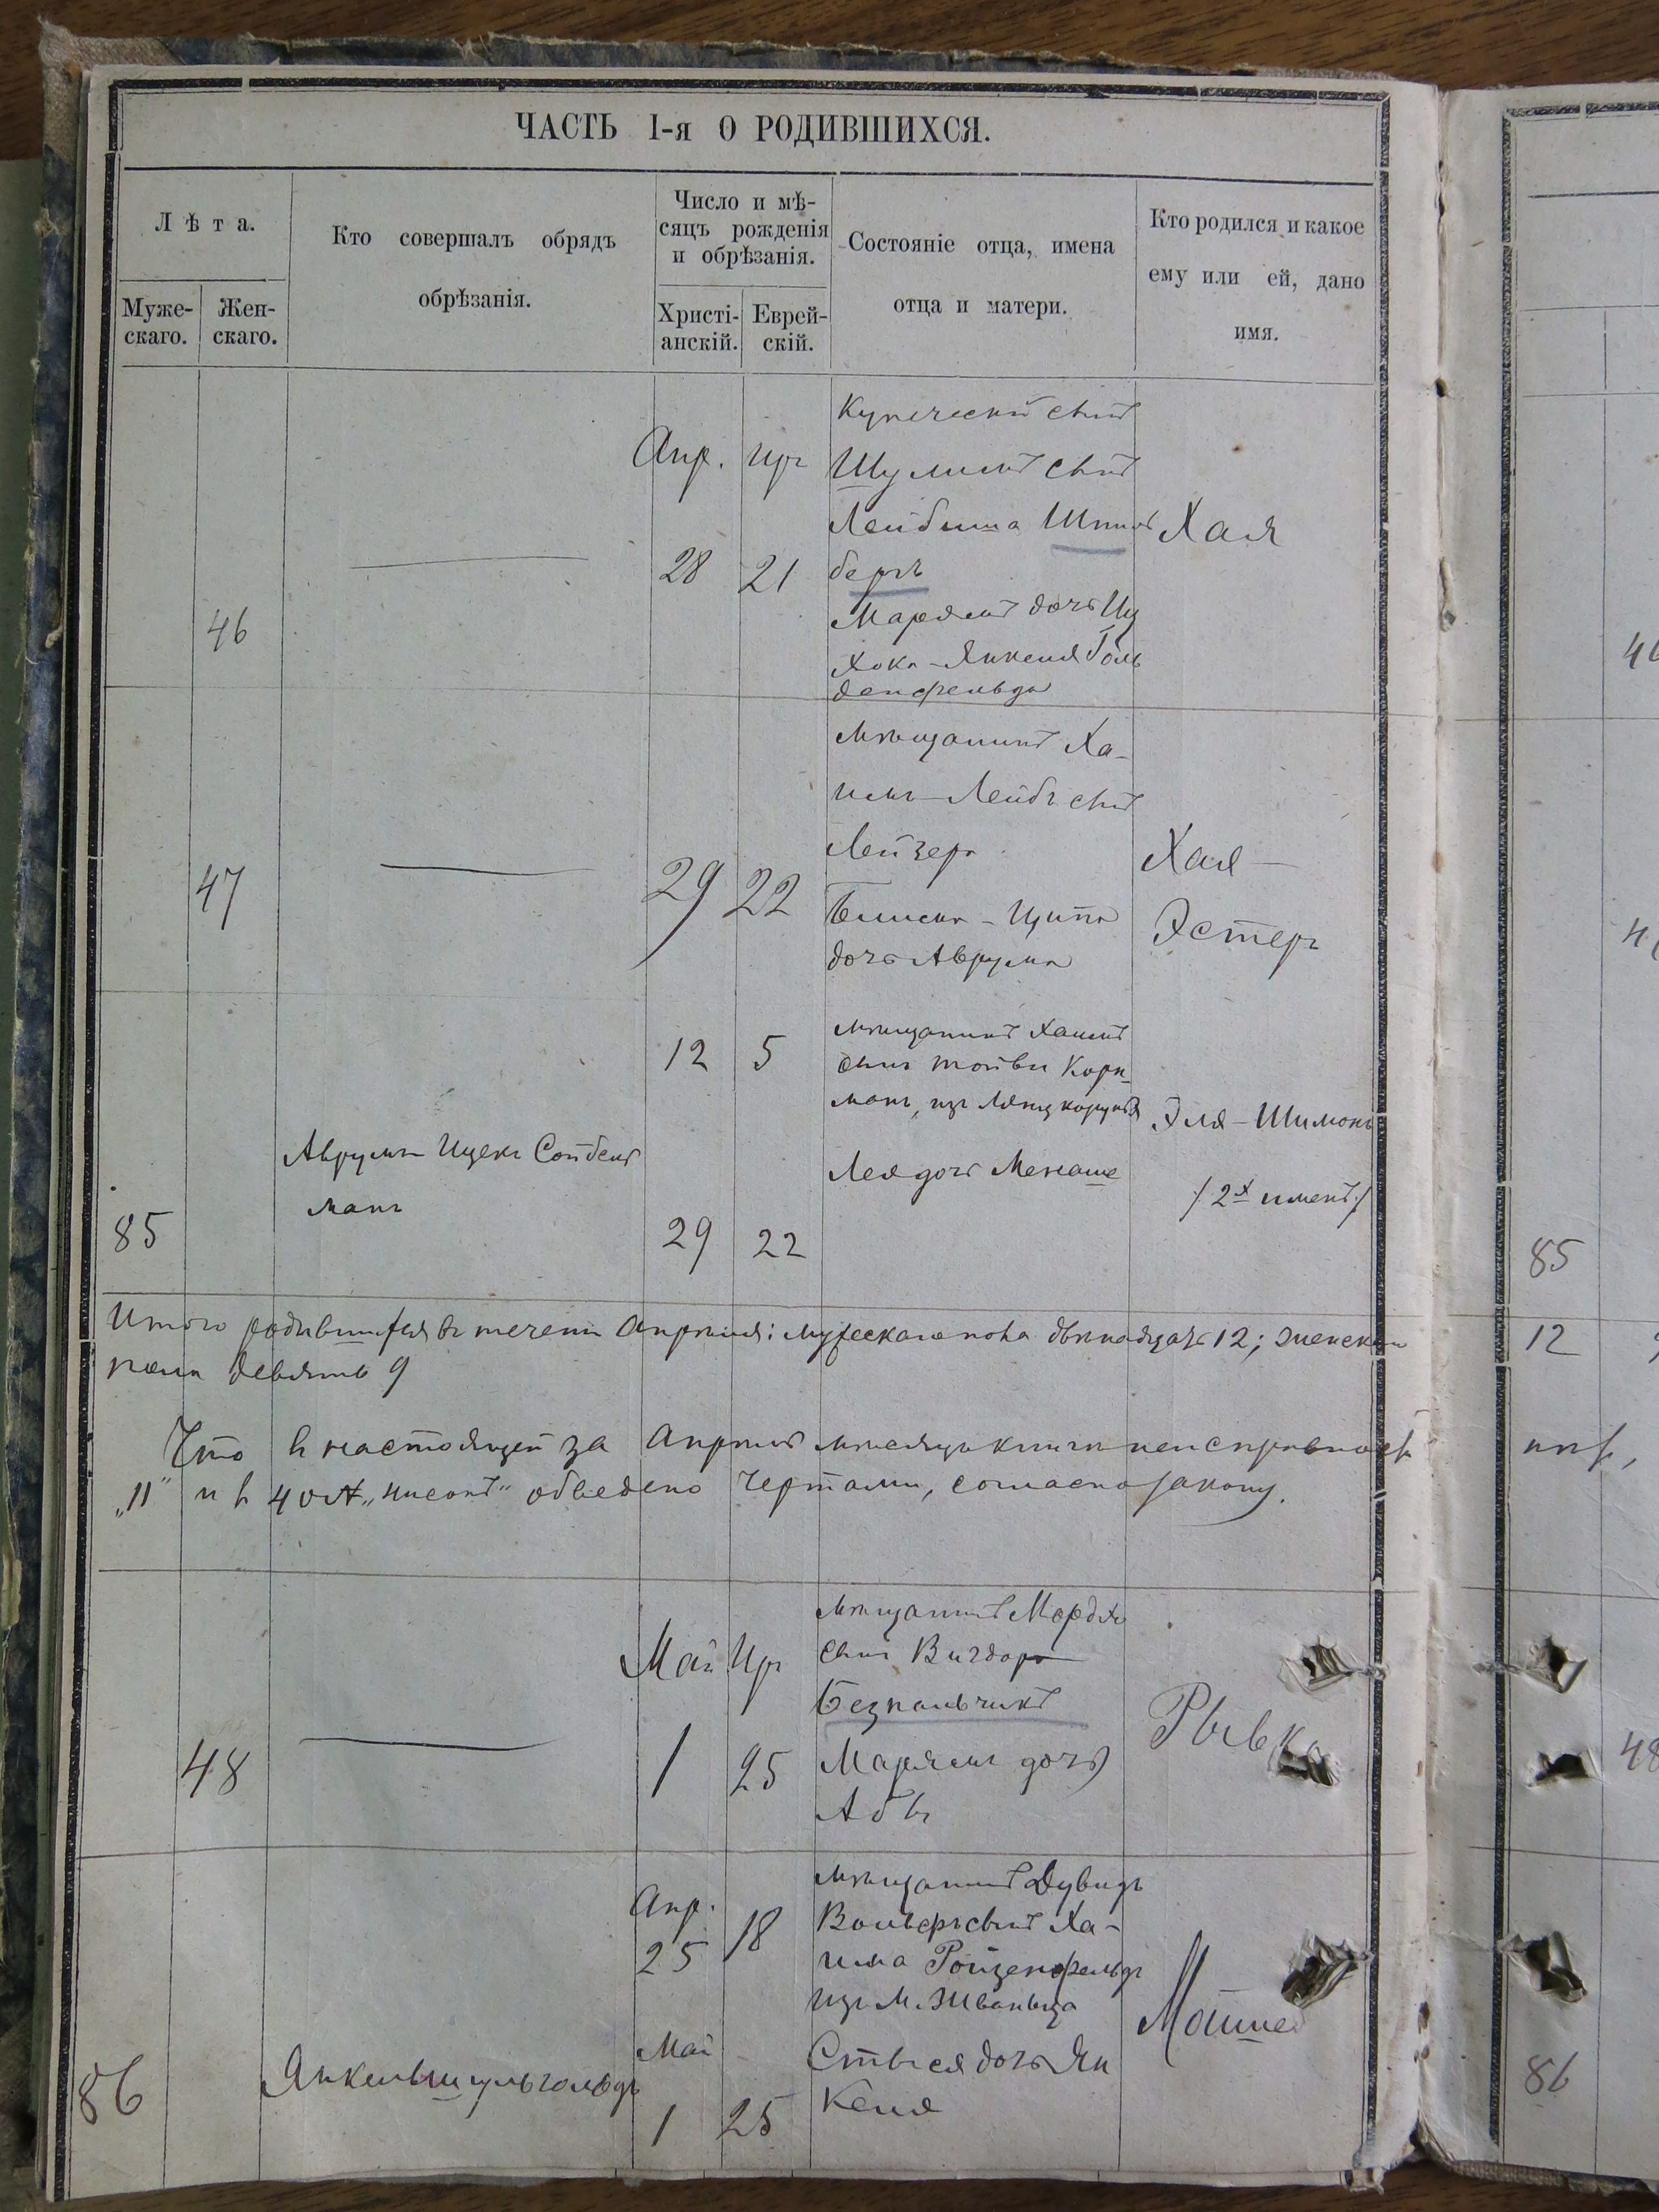 ЧАСТЬ I-я О РОДИВШИХСЯ.
Лѣта.
Муже-
скаго.
Жен-
скаго.
Кто совершалъ обрядъ
обрѣзанія.
Число и мѣ-
сяцъ рожденія
и обрѣзанія.
Христі-
анскій.
Еврей-
скій.
Состояніе отца, имена
отца и матери.
Кто родился и какое
ему или ей, дано
имя.
46
Апр.
28
Иръ
21
Купеческій сынъ
Шулимъ сынъ
Лейбиша
бергъ
Марямъ дочь Иц
хока-Янкеля Голь
денфельда
Хая
47
29
22
Мѣщанинъ Ха-
имъ-Лейбъ сынъ
Лейзера
Ципа
дочь Аврума
Хая-
Эстеръ
85
Аврумъ Ицекъ Сойбель
манъ
12
5
29
22
Мѣщанинъ Хаимъ
сынъ Тойви Корн-
манъ, изъ Лянцкоруня
Лея дочь Менаше
Эля-Шимонъ
/2хъ именъ/
85
Итого родившихся въ теченіи Апрѣля: мужескаго пола двѣнадцать 12; женскаго
пола девять 9
12
Что въ настоящей за Апрѣль мѣсяцъ книгѣ неисправность
„11" и въ 40 № „нисонъ" обведено чертами, согласно закону.
48
Май
1
Иръ
25
Мѣщанинъ Мордхо
сынъ Вигдора
Безпальчикъ
Марямъ дочь
Абы
Рывка
48
86
Янкель Шульгольдъ
Апр.
25
18
Май
1
25
Мѣщанинъ Дувидъ
Вольфъ сынъ Ха-
има Ройзенфельдъ
изъ М. Жваньца
Стыся дочь Ян
келя
86